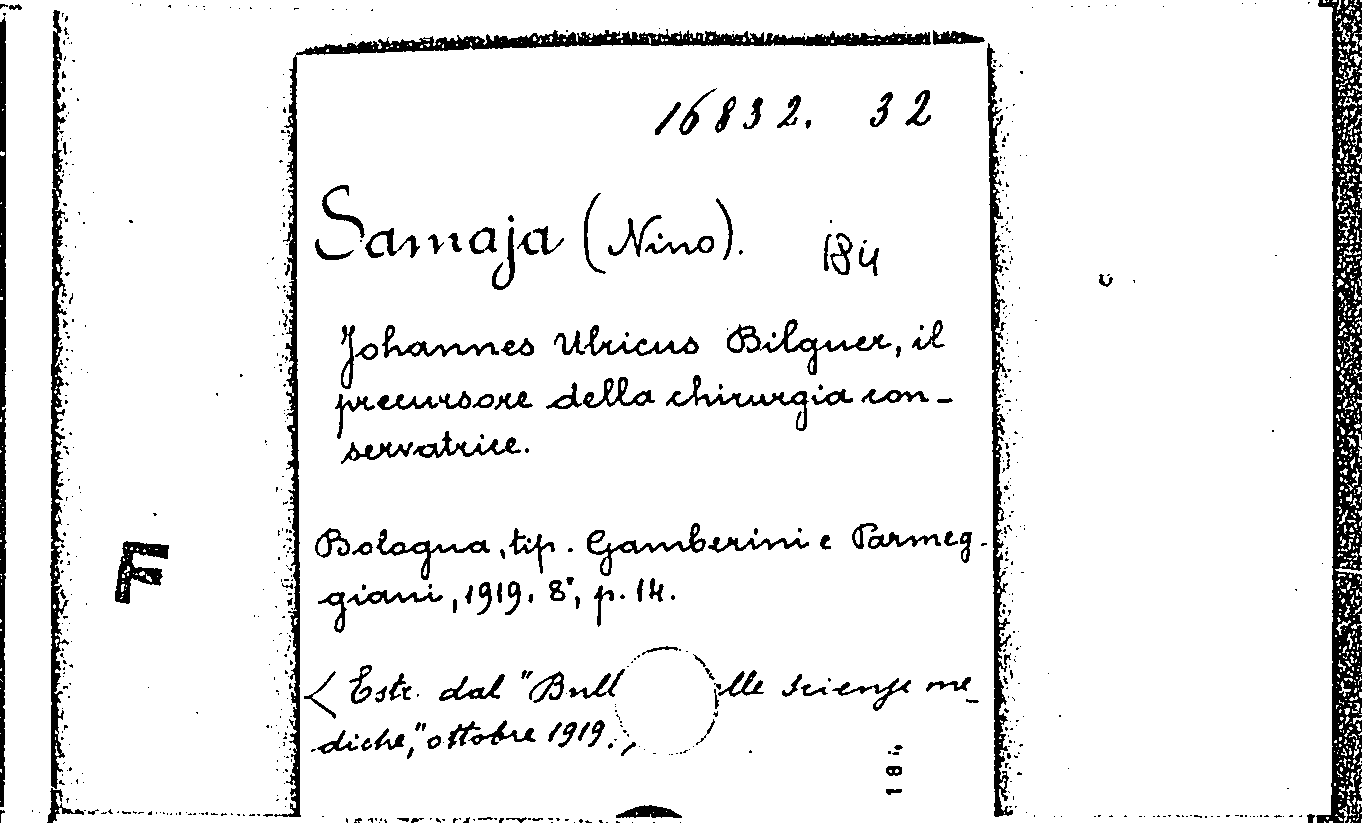 16832. 32
Samaja (Nino). 184
Johannes Ulricus Bilguer, il
precursore della chirurgia con-
servatrice.
Bologna, tip. Gamberini e Parmeg-
giani, 1919. 8°, p. 14.
Estr. dal "Bull elle scienze me-
diche," ottobre 1919.
184
F